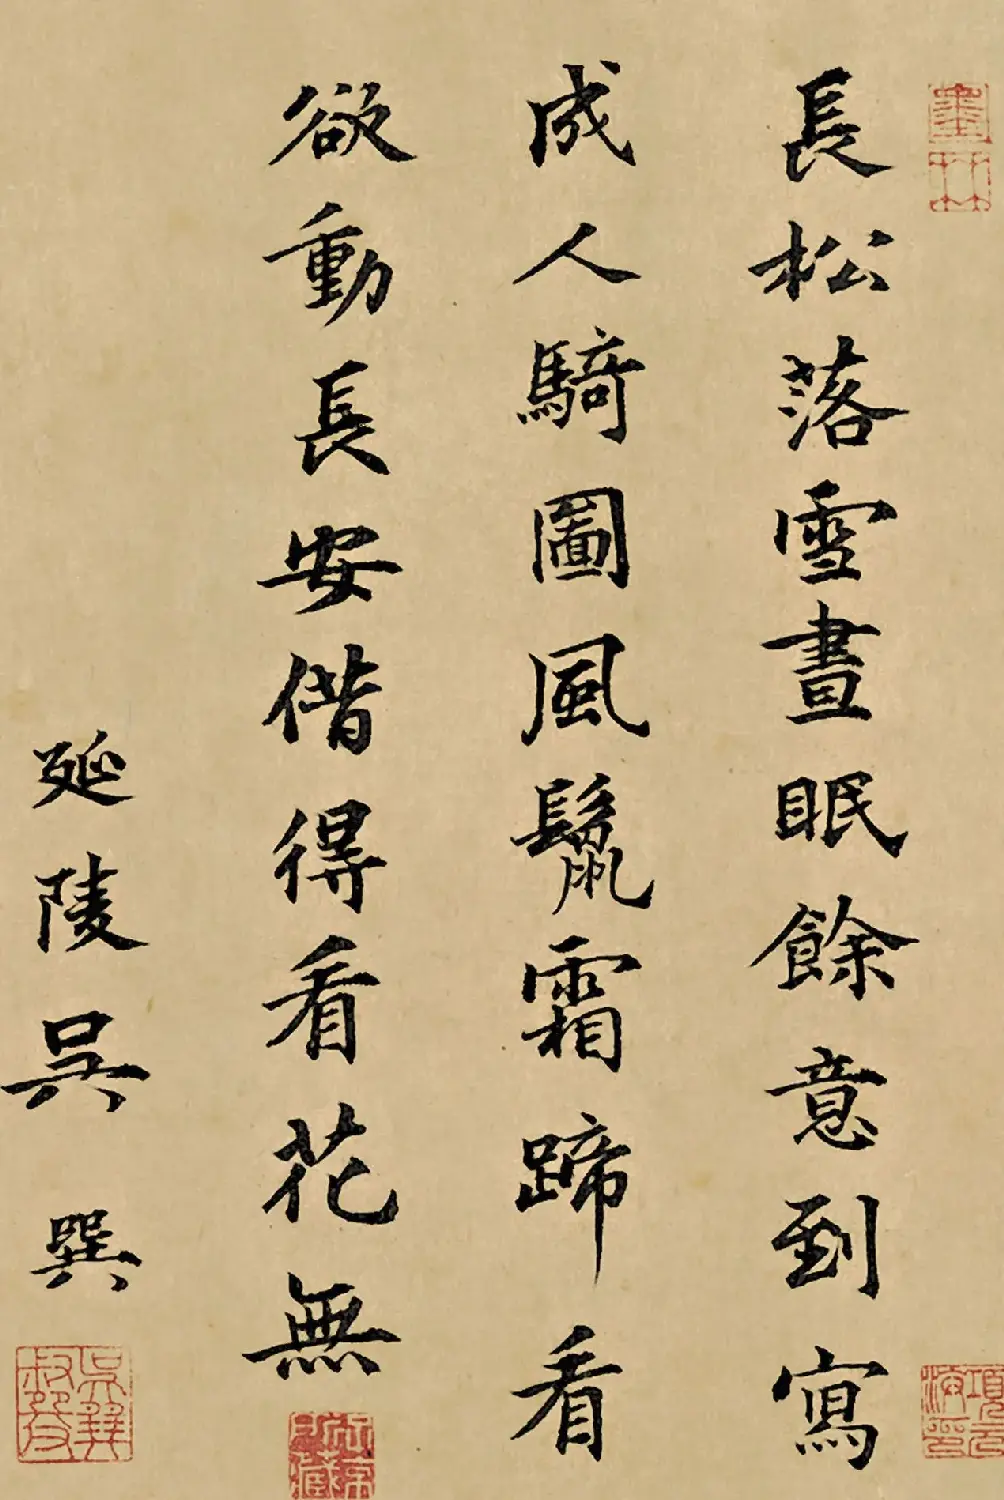 長松落雪晝眠餘意到寫
成人騎圖風鬣霜蹄看
欲動長安借得看花無
延陵吳巽